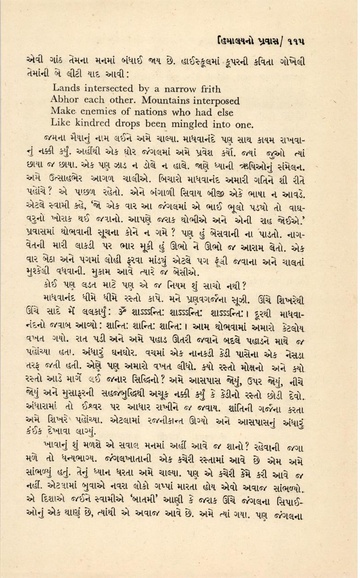 હિમાલયનો પ્રવાસ/ ૧૧૫
એવી ગાંઠ તેમના મનમાં બંધાઈ જાય છે. હાઈસ્કૂલમાં કૂપરની કવિતા ગોખેલી
તેમાંની બે લીટી યાદ આવી :
Lands intersected by a narrow frith
Abhor each other. Mountains interposed
Make enemies of nations who had else
Like kindred drops been mingled into one.
જમના મૈયાનું નામ લઈને અમે ચાલ્યા. માધવાનંદે પણ સાથ કાયમ રાખવા-
નું નક્કી કર્યું. અહીંથી એક ઘોર જંગલમાં અમે પ્રવેશ કર્યો. જ્યાં જુઓ ત્યાં
છાયા જ છાયા. એક પણ ઝાડ ન ડોલે ન હાલે. જાણે ધ્યાની ઋષિઓનું સંમેલન.
અમે ઉત્સાહભેર આગળ ચાલીએ. બિચારો માધવાનંદ અમારી ગતિને શી રીતે
પહોંચે ? એ પાછળ રહેતો. એને બંગાળી સિવાય બીજી એકે ભાષા ન આવડે.
એટલે સ્વામી કહે, 'જો એક વાર આ જંગલમાં એ ભાઈ ભૂલો પડ્યો તો વાઘ-
વરુનો ખોરાક થઈ જવાનો. આપણે જરાક થોભીએ અને એની રાહ જોઈએ.'
પ્રવાસમાં થોભવાની સૂચના કોને ન ગમે ? પણ હું બેસવાની ના પાડતો. નાગ-
વેતની મારી લાકડી પર ભાર મૂકી હું ઊભો ને ઊભો જ આરામ લેતો. એક
વાર બેઠા અને પગમાં લોહી ફરવા માંડ્યું એટલે પગ ફૂલી જવાના અને ચાલતાં
મુશ્કેલી વધવાની. મુકામ આવે ત્યારે જ બેસીએ.
કોઈ પણ લડત માટે પણ એ જ નિયમ શું સાચો નથી ?
માધવાનંદ ધીમે ધીમે રસ્તો કાપે. મને પ્રણવગર્જના સૂઝી. ઊંચે શિખરેથી
ઊંચે સાદે મેં લલકાર્યું : ૐ શાઽઽઽન્તિઃ શાઽઽઽન્તિઃ શાઽઽઽન્તિઃ। દૂરથી માધવા-
નંદનો જવાબ આવ્યો : શાન્તિઃ શાન્તિઃ શાન્તિઃ। આમ થોભવામાં અમારો કેટલોય
વખત ગયો. રાત પડી અને અમે પહાડ ઊતરી જવાને બદલે પહાડને માથે જ
પહોંચ્યા હતા. અંધારું ઘનઘોર. વચમાં એક નાનકડી કેડી પાસેના એક નેસડા
તરફ જતી હતી. એણે પણ અમારો વખત લીધો. ક્યો રસ્તો મોક્ષનો અને ક્યો
રસ્તો આડે માર્ગે લઈ જનાર સિદ્ધિનો ? અમે આસપાસ જોયું, ઉપર જોયું, નીચે
જોયું અને મુસાફરની સહજબુદ્ધિથી અચૂક નક્કી કર્યું કે કેડીનો રસ્તો છોડી દેવો.
અંધારામાં તો ઈશ્વર પર આધાર રાખીને જ જવાય. શાંતિની ગર્જના કરતા
અમે શિખરે પહોંચ્યા. એટલામાં રજનીકાન્ત ઊગ્યો અને આસપાસનું અંધારું
કંઈક દેખાવા લાગ્યું.
ખાવાનું શું મળશે એ સવાલ મનમાં અહીં આવે જ શાનો ? રહેવાની જગા
મળે તો ધન્યભાગ્ય. જંગલખાતાની એક કચેરી રસ્તામાં આવે છે એમ અમે
સાંભળ્યું હતું. તેનું ધ્યાન ધરતા અમે ચાલ્યા. પણ એ કચેરી કેમે કરી આવે જ
નહીં. એટલામાં ધુવાએ નવરા લોકો ગપ્પાં મારતા હોય એવો અવાજ સાંભળ્યો.
એ દિશાએ જઈને સ્વામીએ 'બાતમી' આણી કે જરાક ઊંચે જંગલના સિપાઈ-
ઓનું એક થાણું છે, ત્યાંથી એ અવાજ આવે છે. અમે ત્યાં ગયા. પણ જંગલના